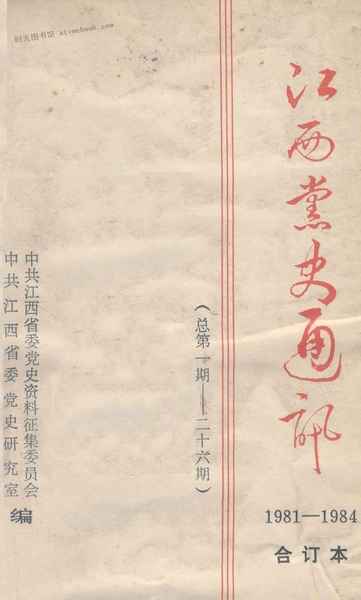 时光图书馆 atimebook.com
江西党史通讯
1981—1984
合订本
（总第一期——二十六期）
中共江西省委党史资料征集委员会
中共江西省委党史研究室
编